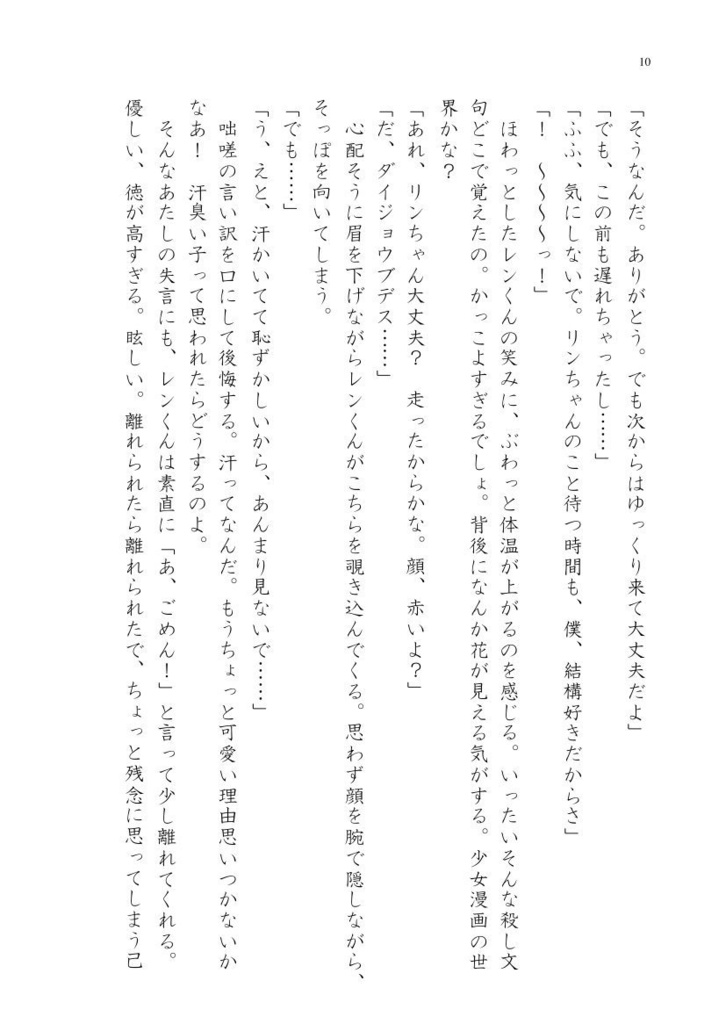 10
「そうなんだ。ありがとう。でも次からはゆっくり来て大丈夫だよ」
「でも、この前も遅れちゃったし……」
「ふふ、気にしないで。リンちゃんのこと待つ時間も、僕、結構好きだからさ」
「！　〜〜〜〜っ！」
　ほわっとしたレンくんの笑みに、ぶわっと体温が上がるのを感じる。いったいそんな殺し文
句どこで覚えたの。かっこよすぎるでしょ。背後になんか花が見える気がする。少女漫画の世
界かな？
「あれ、リンちゃん大丈夫？　走ったからかな。顔、赤いよ？」
「だ、ダイジョウブデス……」
　心配そうに眉を下げながらレンくんがこちらを覗き込んでくる。思わず顔を腕で隠しながら、
そっぽを向いてしまう。
「でも……」
「う、えと、汗かいてて恥ずかしいから、あんまり見ないで……」
　咄嗟の言い訳を口にして後悔する。汗ってなんだ。もうちょっと可愛い理由思いつかないか
なあ！　汗臭い子って思われたらどうするのよ。
　そんなあたしの失言にも、レンくんは素直に「あ、ごめん！」と言って少し離れてくれる。
優しい、徳が高すぎる。眩しい。離れられたら離れられたで、ちょっと残念に思ってしまう己